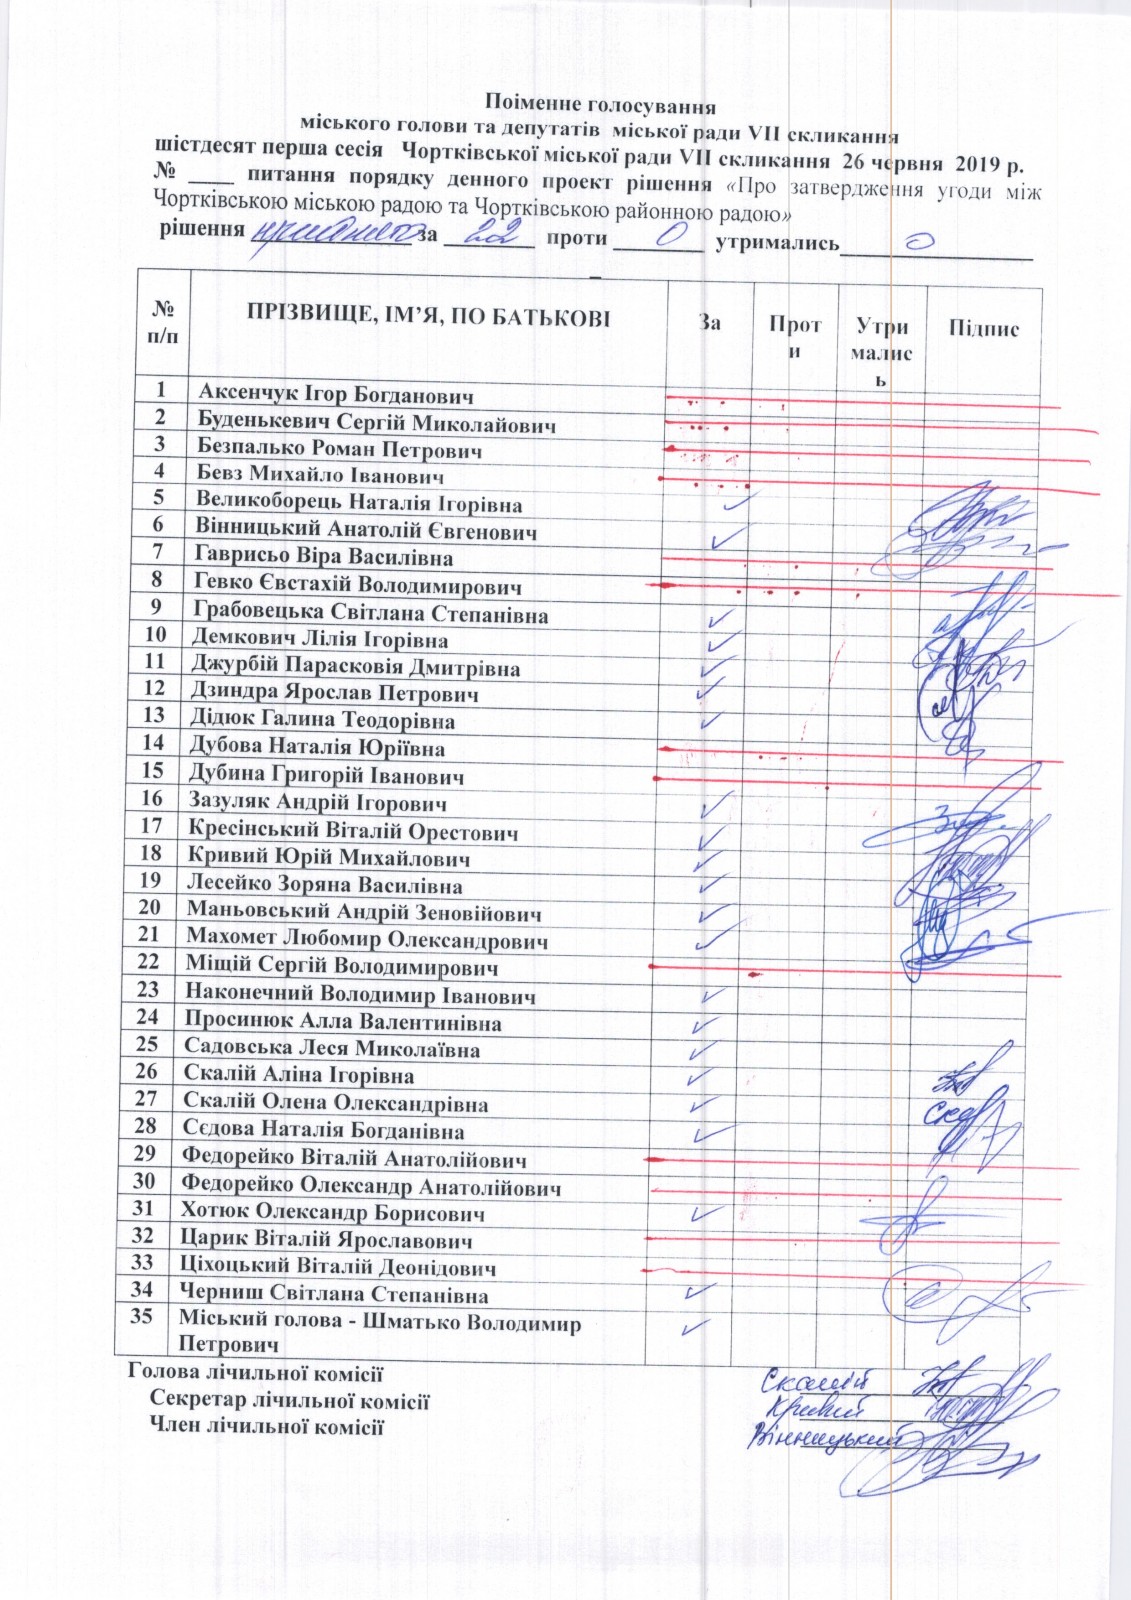 Поіменне голосування
міського голови та депутатів міської ради VII скликання
шістдесят перша сесія Чортківської міської ради VII скликання 26 червня 2019 р.
№ ____ питання порядку денного проект рішення «Про затвердження угоди між
Чортківською міською радою та Чортківською районною радою»
рішення прийнято за 22 проти 0 утримались 0
№ п/п ПРІЗВИЩЕ, ІМ’Я, ПО БАТЬКОВІ За Проти Утрималис ь Підпис
1 Аксенчук Ігор Богданович
2 Буденькевич Сергій Миколайович
3 Безпалько Роман Петрович
4 Бевз Михайло Іванович
5 Великоборець Наталія Ігорівна ✓
6 Вінницький Анатолій Євгенович ✓
7 Гаврисьо Віра Василівна
8 Гевко Євстахій Володимирович
9 Грабовецька Світлана Степанівна ✓
10 Демкович Лілія Ігорівна ✓
11 Джурбій Парасковія Дмитрівна ✓
12 Дзиндра Ярослав Петрович ✓
13 Дідюк Галина Теодорівна ✓
14 Дубова Наталія Юріївна
15 Дубина Григорій Іванович
16 Зазуляк Андрій Ігорович ✓
17 Кресінський Віталій Орестович ✓
18 Кривий Юрій Михайлович ✓
19 Лесейко Зоряна Василівна ✓
20 Маньовський Андрій Зеновійович ✓
21 Махомет Любомир Олександрович ✓
22 Міщій Сергій Володимирович
23 Наконечний Володимир Іванович ✓
24 Просинюк Алла Валентинівна ✓
25 Садовська Леся Миколаївна ✓
26 Скалій Аліна Ігорівна ✓
27 Скалій Олена Олександрівна ✓
28 Сєдова Наталія Богданівна ✓
29 Федорейко Віталій Анатолійович
30 Федорейко Олександр Анатолійович
31 Хотюк Олександр Борисович ✓
32 Царик Віталій Ярославович
33 Ціхоцький Віталій Деонідович
34 Черниш Світлана Степанівна ✓
35 Міський голова - Шматько Володимир ✓
Петрович
Голова лічильної комісії Скалій
Секретар лічильної комісії Кривий
Член лічильної комісії Вінницький